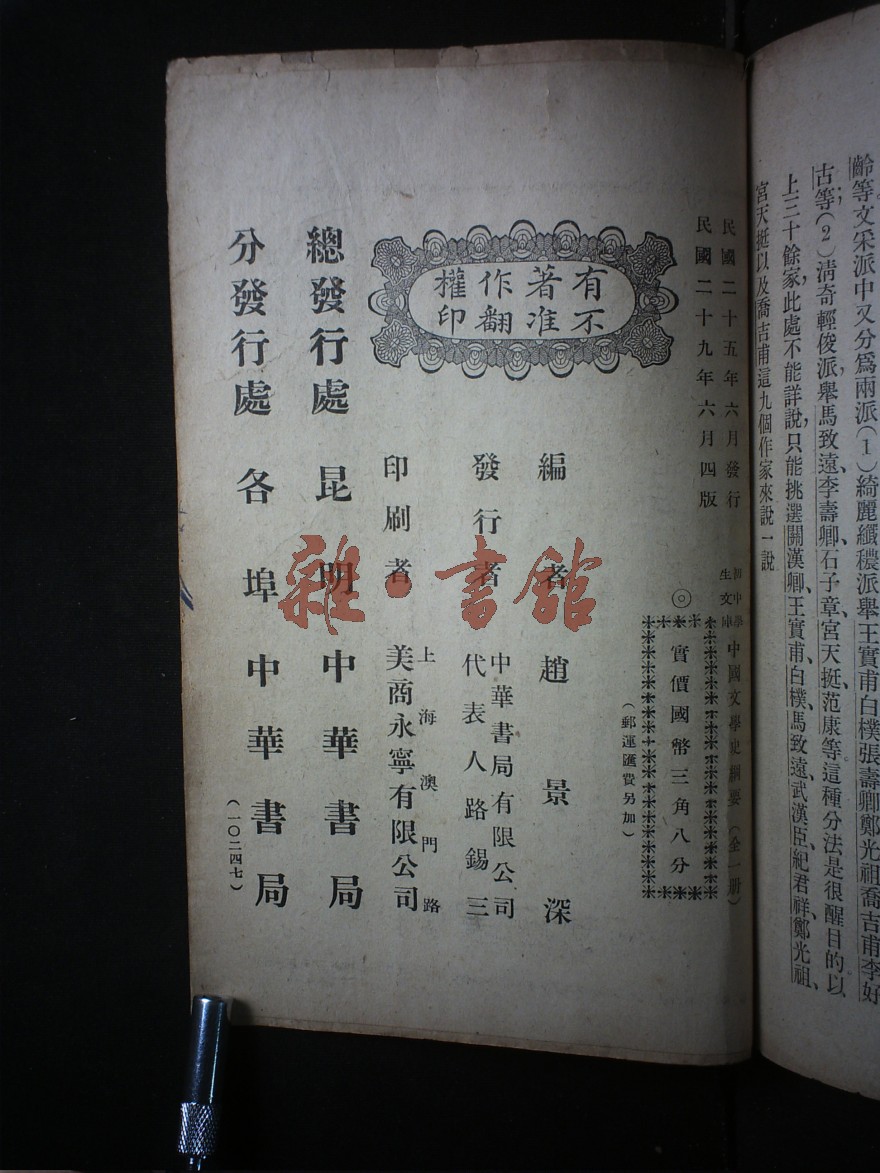 齡等文采派中又分爲兩派(1)綺麗纖穠派舉王實甫白樸張壽卿鄭光祖喬吉甫李好
古等;(2)淸奇輕俊派舉馬致遠、李壽卿、石子章、宮天挺、范康等。這種分法是很醒目的。以
上三十餘家,此處不能詳說,只能挑選關漢卿、王實甫、白樸、馬致遠、武漢臣、紀君祥、鄭光祖、
宮天挺以及喬吉甫這九個作家來說一說
民國二十五年六月發行
民國二十九年六月四版
初中學
生文庫
中國文學史綱要(全一册)
◎實價國幣三角八分
(郵運匯費另加)
有著作權
不准翻印
編者 趙景深
發行者 中華書局有限公司
代表人路錫三
印刷者 上海澳門路
美商永寧有限公司
總發行處 昆明中華書局
分發行處 各埠中華書局
(一〇二四七)
雜·書館